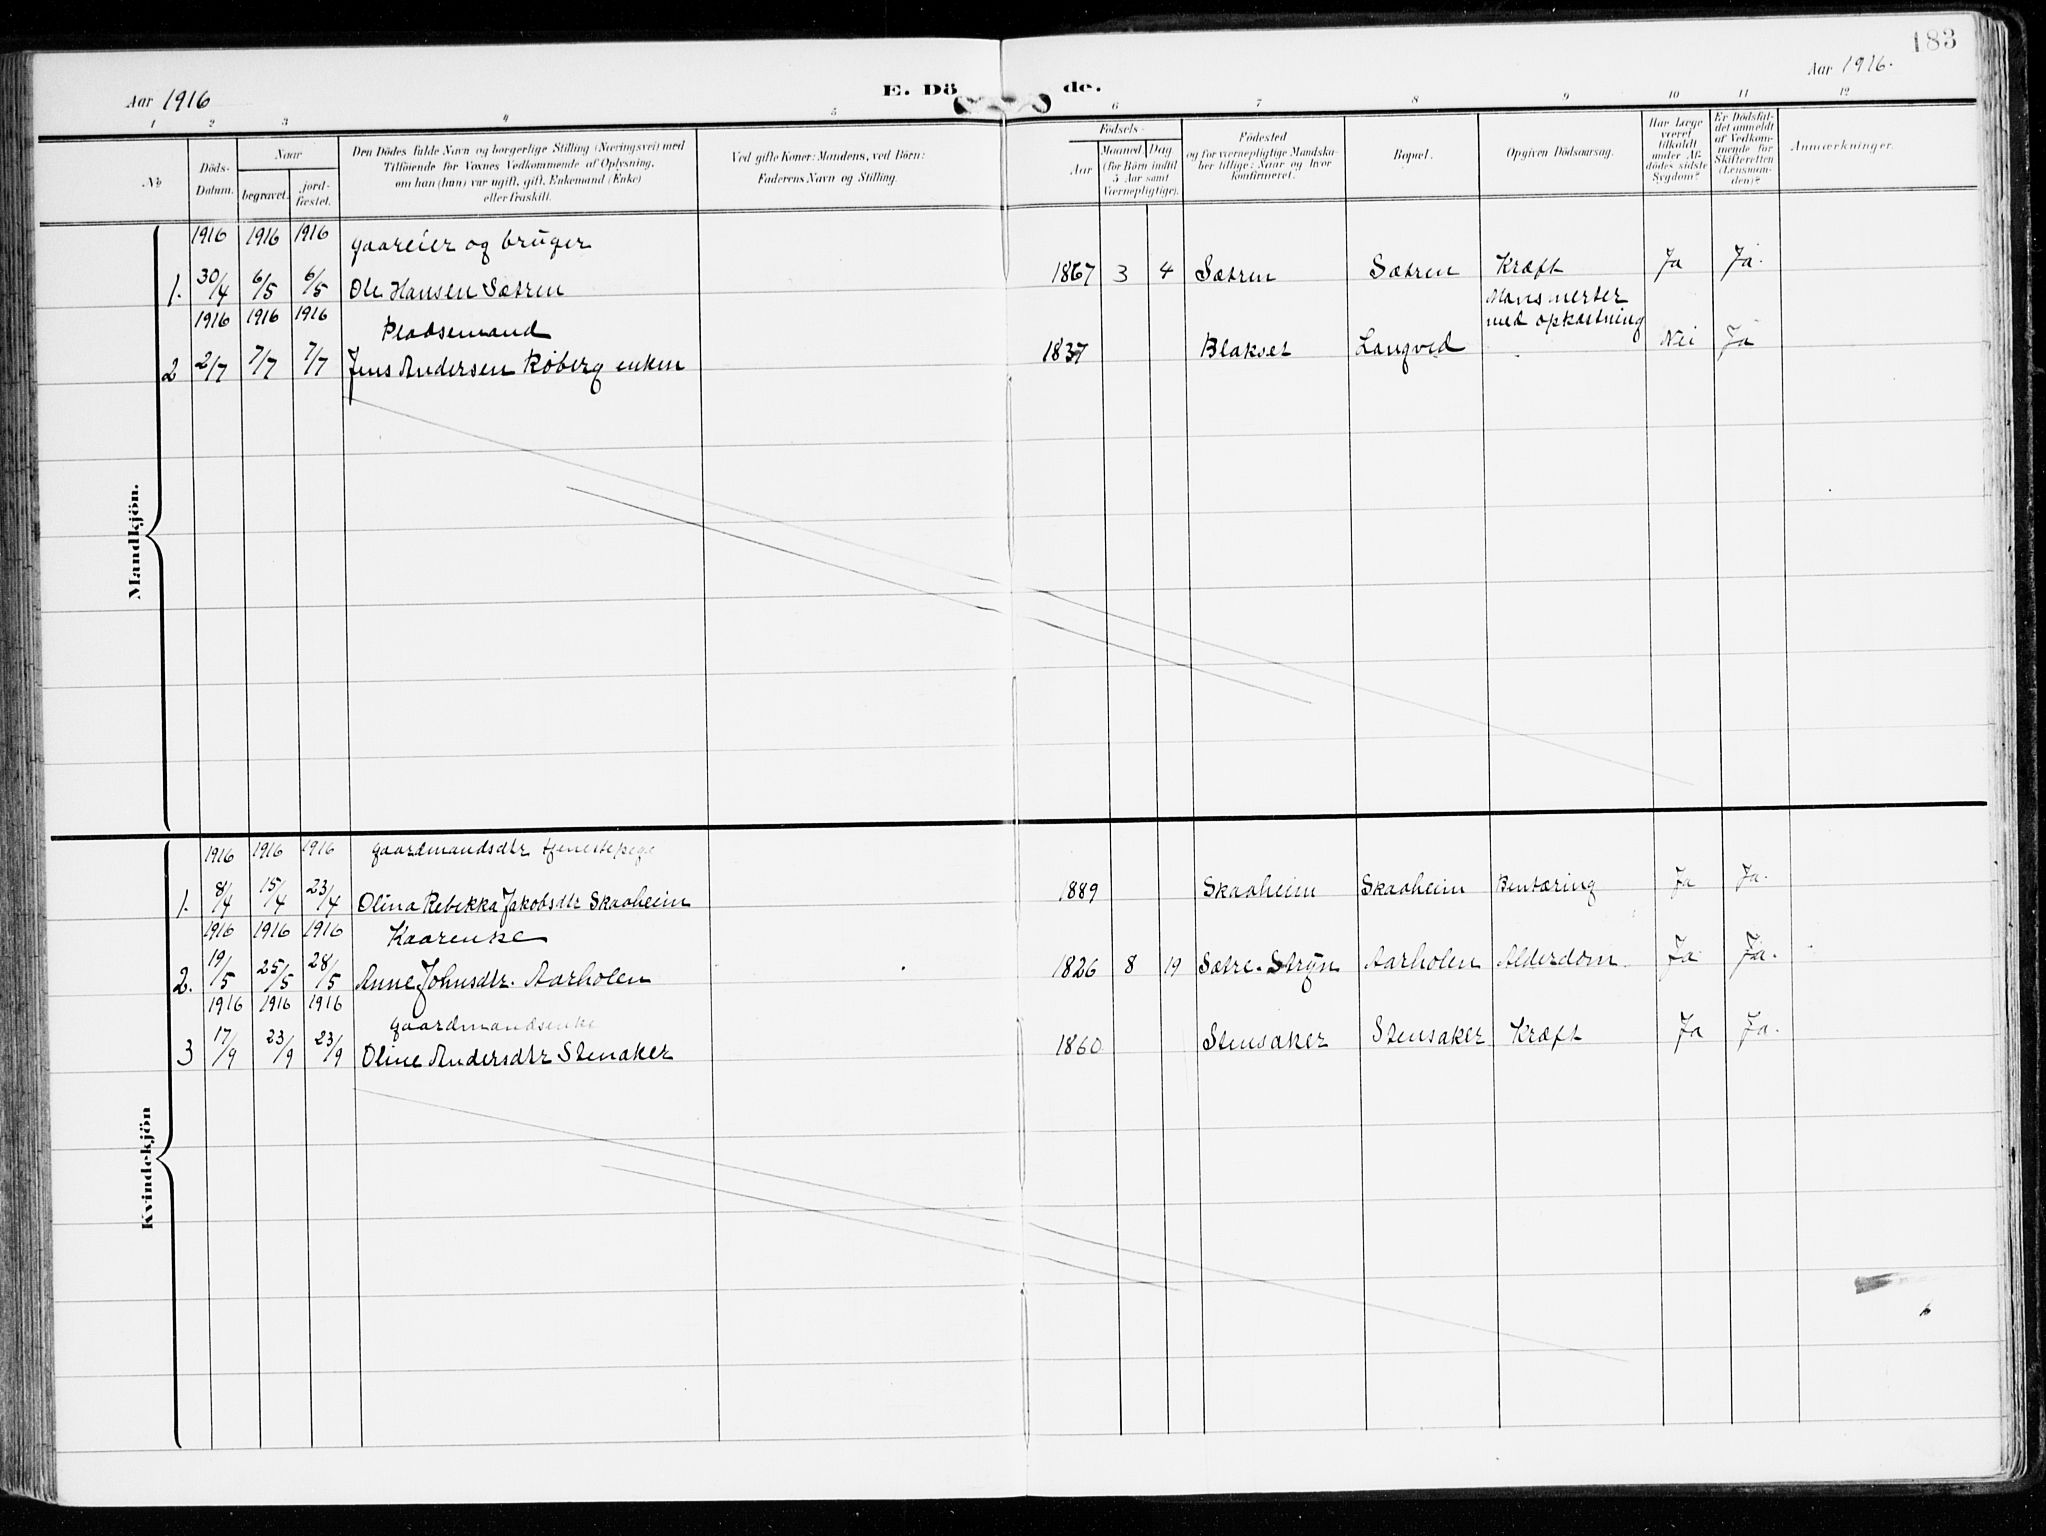 183
Aar 1916
E. Dö de.
Aar 1916.
1 2 3 4 5 6 7 8 9 10 11 12
№
Döds-
Datum.
Naar
begravet.
jord-
fæstet.
Den Dödes fulde Navn og borgerlige Stilling (Næringsvei) med
Tilföiende for Voxnes Vedkommende af Oplysning,
om han (hun) var ugift, gift, Enkemand (Enke)
eller fraskilt.
Ved gifte Koner: Mandens, ved Börn:
Faderens Navn og Stilling.
Födsels-
Aar
Maaned Dag
(for Börn indtil
5 Aar samt
Værnepligtige).
Födested
og for værnepligtige Mandska-
ber tillige: Naar og hvor
konfirmeret.
Bopæl.
Opgiven Dödsaarsag.
Har Læge
været
tilkaldt
under Af-
dödes sidste
Sygdom?
Er Dödsfal-
det anmeldt
af Vedkom-
mende for
Skifteretten
(Lensman-
den)?
Anmærkninger.
Mandkjön.
1916 1916 1916 gaareier og bruger
1. 30/4 6/5 6/5 Ole Hansen Sætren 1867 3 4 Sætren Sætren Kræft Ja Ja.
1916 1916 1916 Pladsemand
2 2/7 7/7 7/7 Jens Andersen Röberg enkem 1837 Blakset Langved
med opkastning Nei Ja
Kvindekjön
1916 1916 1916 gaardmandsdtr tjenestepige
1. 8/4 15/4 23/4 Olina Rebekka Jakobsdtr Skaaheim 1889 Skaaheim Skaaheim Bentæring Ja Ja.
1916 1916 1916 Kaarenke
2. 19/5 25/5 28/5 Anne Johnsdtr. Aarholen 1826 8 19 Sætre. Stryn Aarholen Alderdom. Ja Ja.
1916 1916 1916
gaardmandsenke
3 17/9 23/9 23/9 Oline Andersdtr Stenaker 1860 Stensaker Stensaker Kræft Ja Ja.